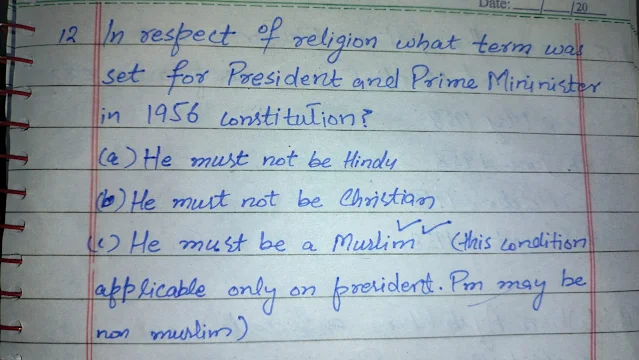 Date: / /20
12 In respect of religion what term was
set for President and Prime Mininister
in 1956 constitution?
(a) He must not be Hindu
(b) He must not be Christian
(c) He must be a Muslim (this condition
applicable only on president. Pm may be
non muslim)